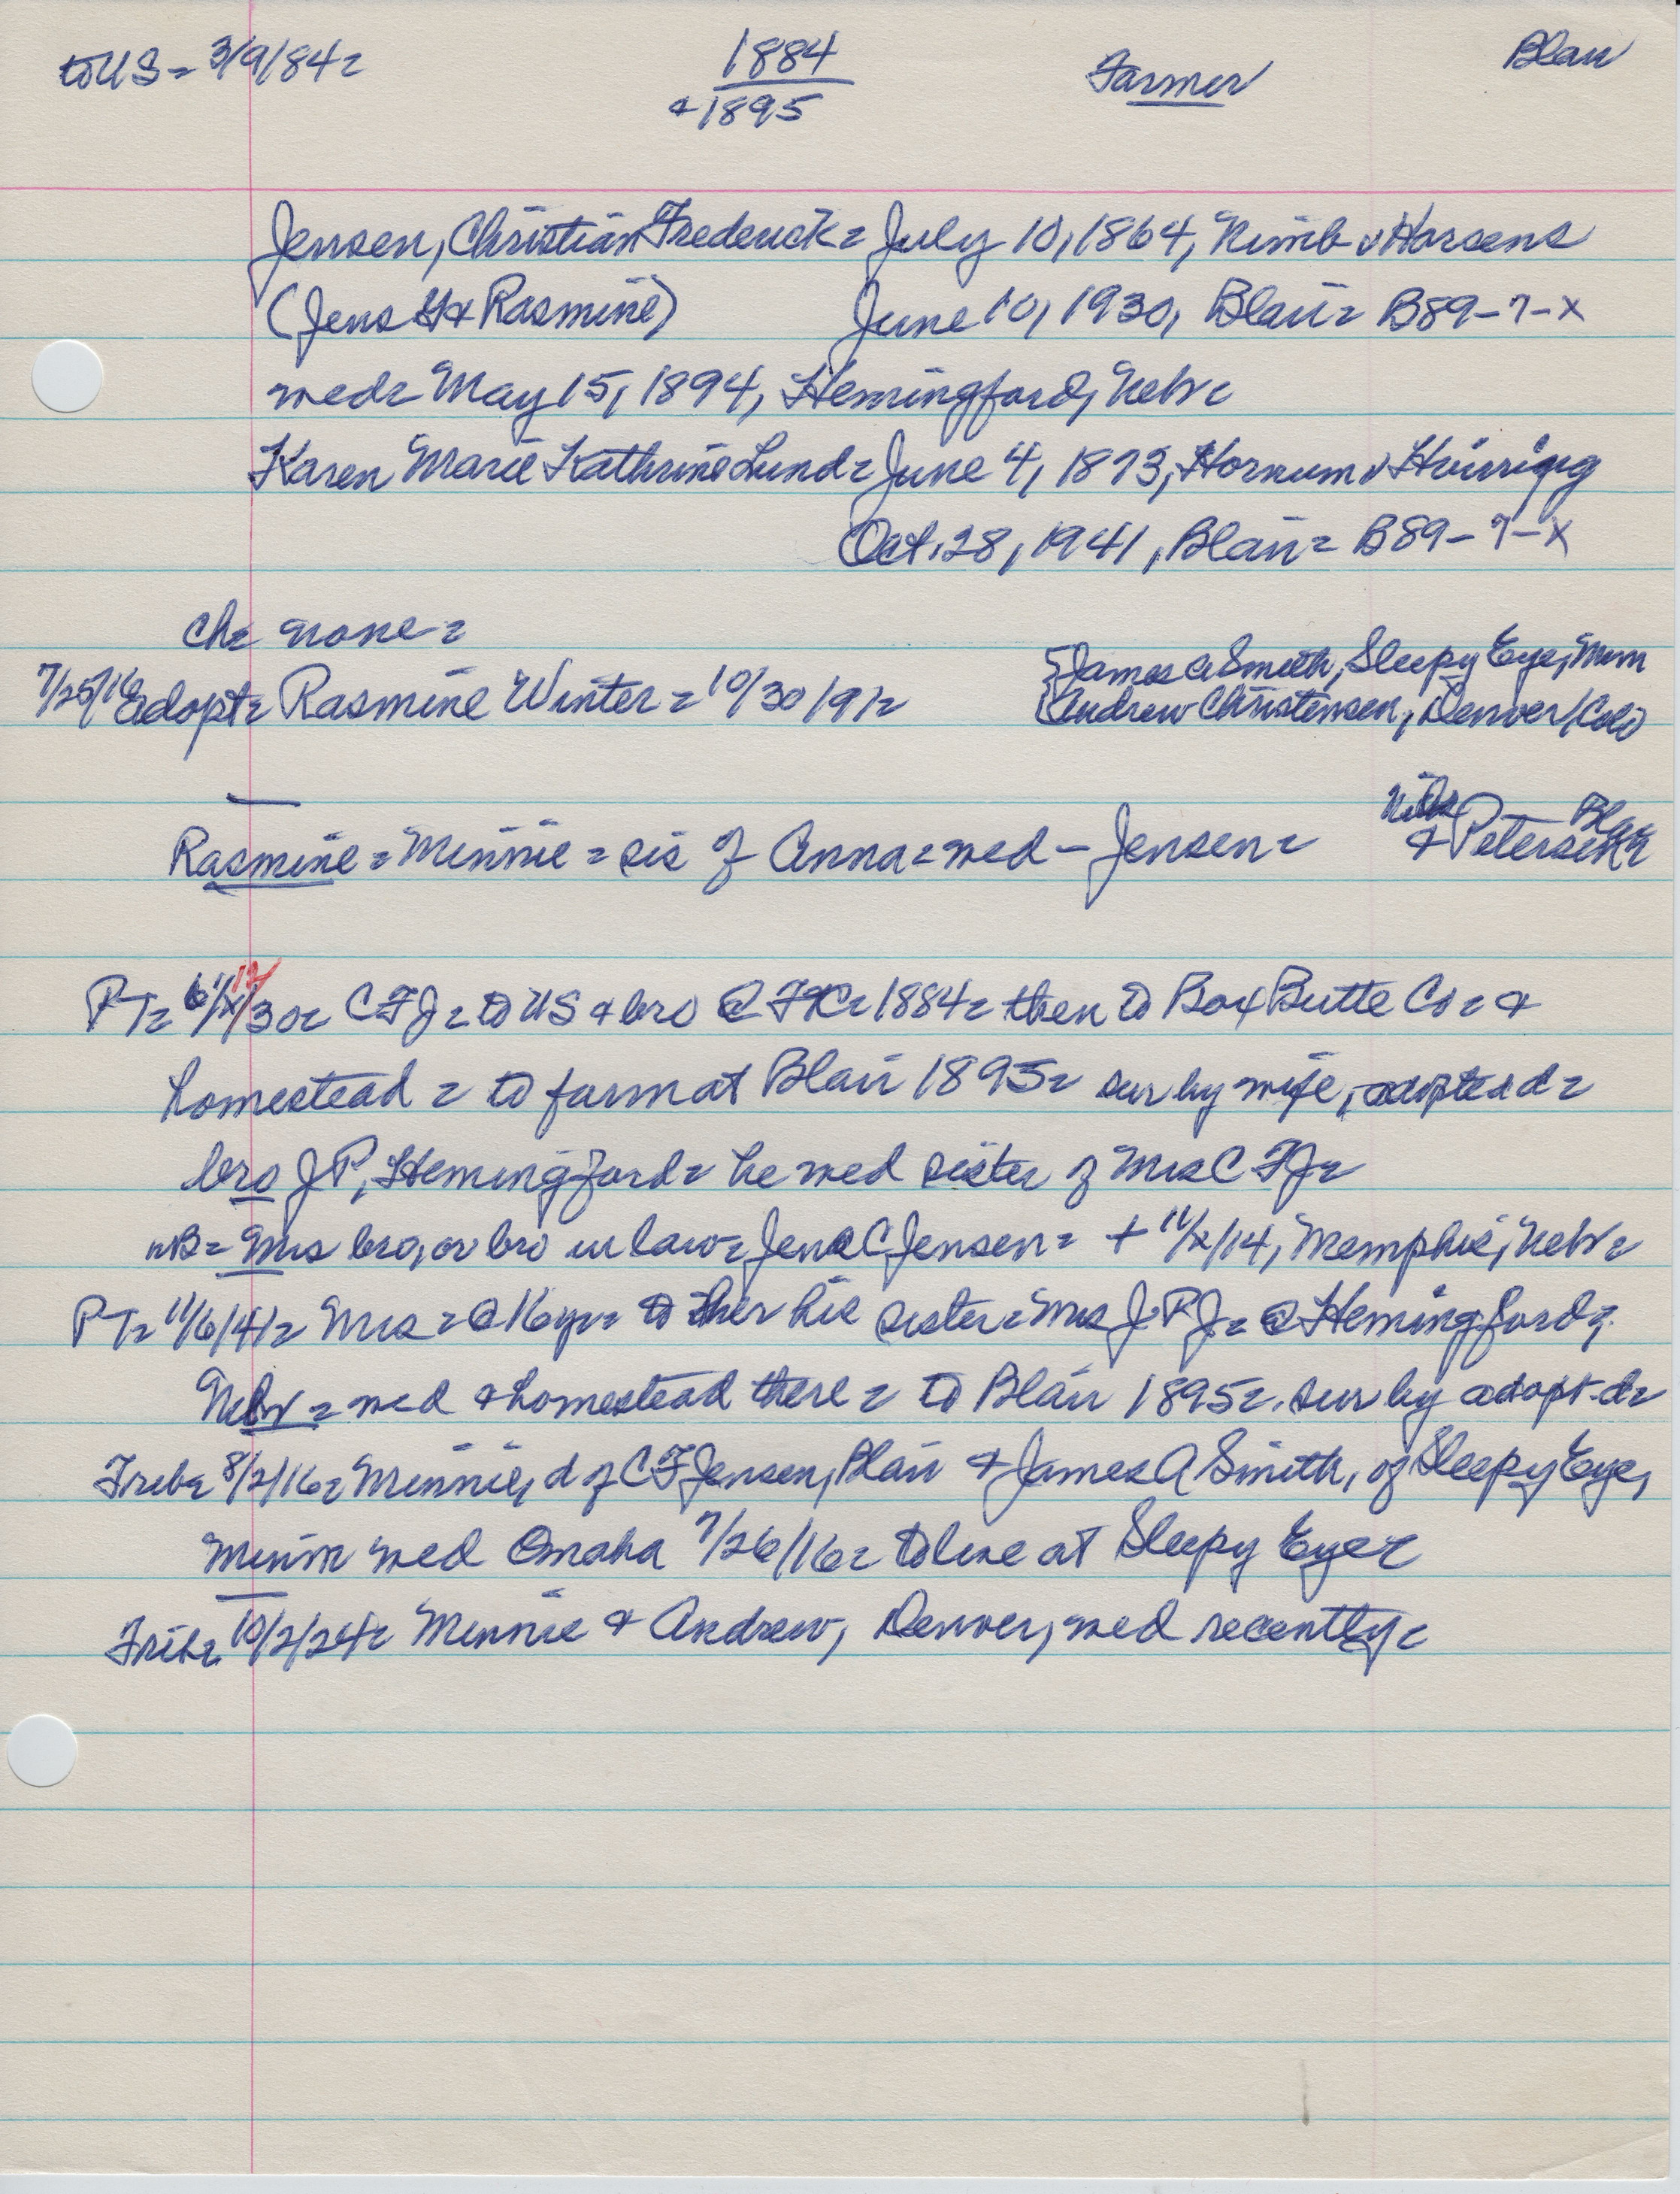 to US = 3/9/84 =
1884
+ 1895
Farmer
Blair
Jensen, Christian Frederick = July 10, 1864, Nimb v Horsens
(Jens & Rasmine) June 10, 1930, Blair = B89-7-X
med = May 15, 1894, Hemingford, Nebr =
Karen Marie Kathrine Lund = June 4, 1873, Hornum v Hjörring
Oct. 28, 1941, Blair = B89-7-X
ch = none =
7/25/16 Adopt = Rasmine Winter = 10/30/91 =
{James A Smith, Sleepy Eye, Minn
{Andrew Christensen, Denver, Colo
Rasmine = Minnie = sis of Anna = med - Jensen =
+ Petersen Blair
PT = 6/12/30 = CFJ = to US & bro @ 1884 = then to Box Butte Co = &
homestead = to farm at Blair 1895 = sur by wife, adopted d =
bro J P, Hemingford = he med sister of Mrs C F J =
NB = Mrs bro, or bro in law = Jens C Jensen = + 11/2/14, Memphis, Nebr =
PT = 11/6/41 = Mrs = @ 16 yr = to her his sister = Mrs J P J = @ Hemingford,
Nebr = med & homestead there = to Blair 1895 = sur by adopt-d =
Trib = 8/2/16 = Minnie, d of C F Jensen, Blair & James A Smith, of Sleepy Eye,
Minn med Omaha 7/26/16 = to live at Sleepy Eye =
Trib = 10/2/24 = Minnie & Andrew, Denver, med recently =